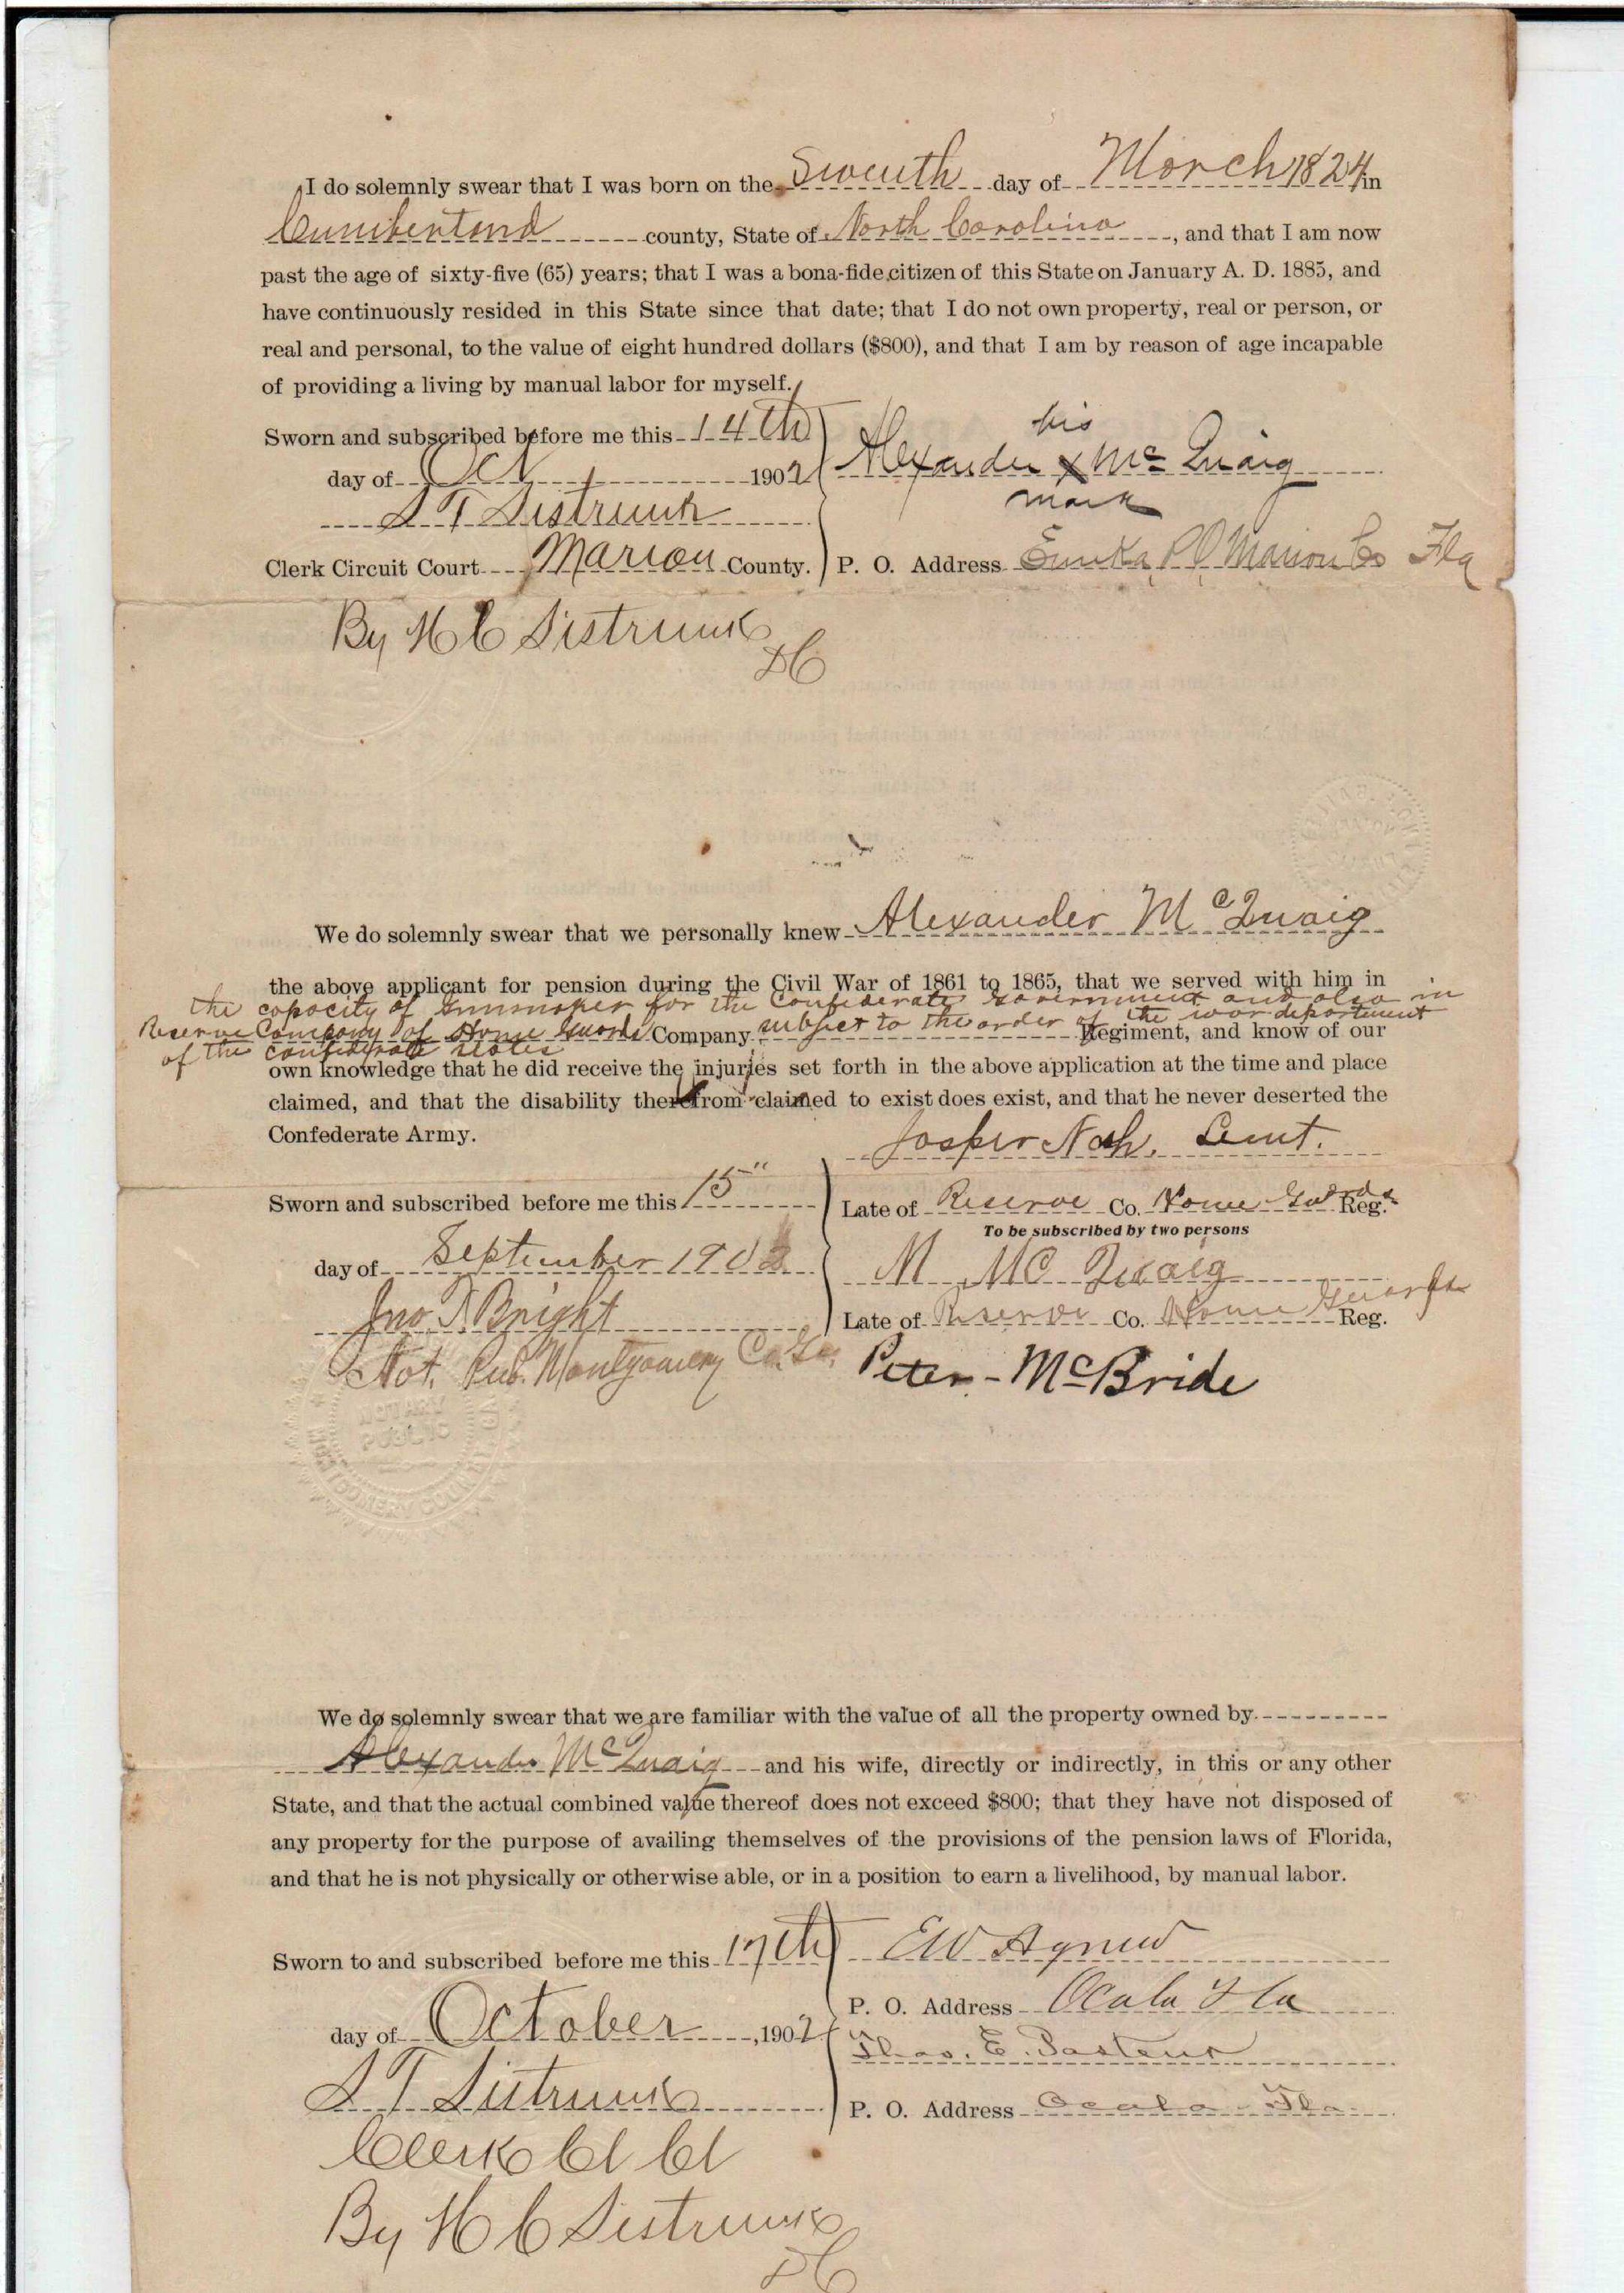 I do solemnly swear that I was born on the Seventh day of March 1824 in
Cumberland county, State of North Carolina, and that I am now
past the age of sixty-five (65) years; that I was a bona-fide citizen of this State on January A. D. 1885, and
have continuously resided in this State since that date; that I do not own property, real or person, or
real and personal, to the value of eight hundred dollars ($800), and that I am by reason of age incapable
of providing a living by manual labor for myself.
Sworn and subscribed before me this 14th
day of Oct 1902
S T Sistrunk
Clerk Circuit Court Marion County.
By H C Sistrunk
DC
his
Alexander x Mc Quaig
mark
P. O. Address Eureka P O Marion Co Fla
We do solemnly swear that we personally knew Alexander McQuaig
the above applicant for pension during the Civil War of 1861 to 1865, that we served with him in
the capacity of Gunmaker for the Confederate Government and also in
Reserve Company of Home Guards Company subject to the order of the war department Regiment, and know of our
of the Confederate States
own knowledge that he did receive the injuries set forth in the above application at the time and place
claimed, and that the disability therefrom claimed to exist does exist, and that he never deserted the
Confederate Army.
Sworn and subscribed before me this 15"
day of September 1902
Jno. T. Bright
Not. Pub. Montgomery Co. Ga.
NOTARY
PUBLIC
MONTGOMERY COUNTY
Josper Nash, Leiut.
Late of Reserve Co. Home Guards Reg.
To be subscribed by two persons
M Mc Quaig
Late of Reserve Co. Home Guards Reg.
Peter McBride
We do solemnly swear that we are familiar with the value of all the property owned by
Alexander McQuaig and his wife, directly or indirectly, in this or any other
State, and that the actual combined value thereof does not exceed $800; that they have not disposed of
any property for the purpose of availing themselves of the provisions of the pension laws of Florida,
and that he is not physically or otherwise able, or in a position to earn a livelihood, by manual labor.
Sworn to and subscribed before me this 17th
day of October, 1902
S T Sistrunk
Clerk Ct Ct
By H C Sistrunk
DC
EW Agnew
P. O. Address Ocala Fla
Thos. E. Pasteur
P. O. Address Ocala Fla